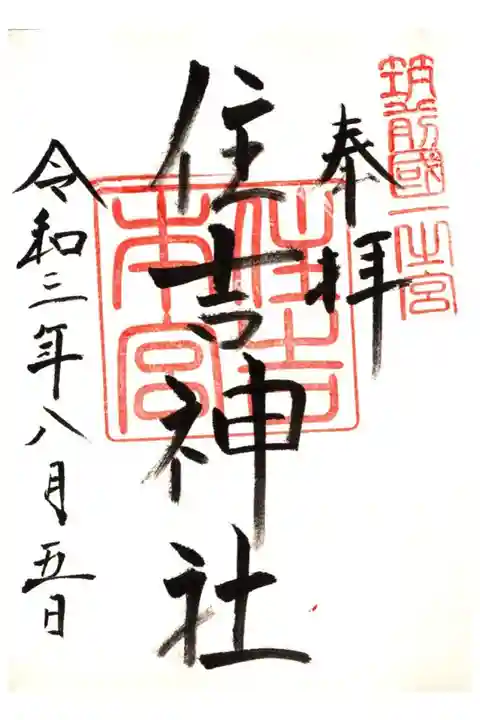 筑前國一之宮
奉拝
住吉神社
住吉本宮
令和三年八月五日